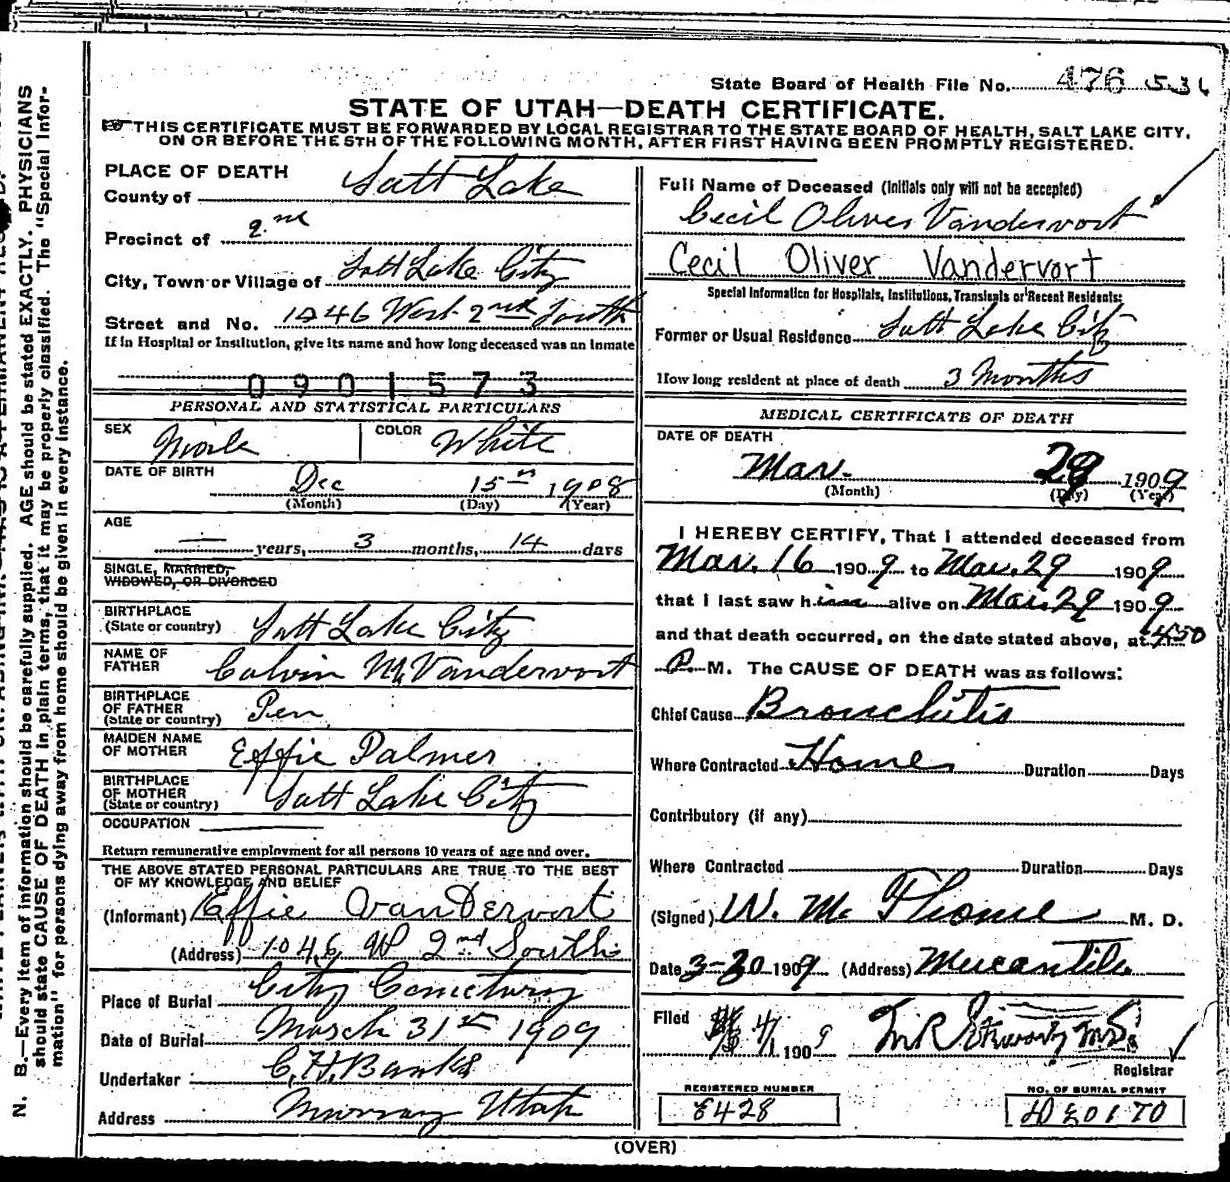 State Board of Health File No. 476 536
STATE OF UTAH—DEATH CERTIFICATE.
THIS CERTIFICATE MUST BE FORWARDED BY LOCAL REGISTRAR TO THE STATE BOARD OF HEALTH, SALT LAKE CITY,
ON OR BEFORE THE 5TH OF THE FOLLOWING MONTH, AFTER FIRST HAVING BEEN PROMPTLY REGISTERED.
PLACE OF DEATH
County of Salt Lake
Precinct of 2nd
City, Town or Village of Salt Lake City
Street and No. 1046 West 2nd South
If in Hospital or Institution, give its name and how long deceased was an inmate
0901573
PERSONAL AND STATISTICAL PARTICULARS
SEX Male COLOR White
DATE OF BIRTH Dec 15 1908
(Month) (Day) (Year)
AGE
— years, 3 months, 14 days
SINGLE, MARRIED,
WIDOWED, OR DIVORCED
BIRTHPLACE
(State or country) Salt Lake City
NAME OF
FATHER Calvin M. Vandervort
BIRTHPLACE
OF FATHER
(State or country) Pen
MAIDEN NAME
OF MOTHER Effie Palmer
BIRTHPLACE
OF MOTHER
(State or country) Salt Lake City
OCCUPATION
Return remunerative employment for all persons 10 years of age and over.
THE ABOVE STATED PERSONAL PARTICULARS ARE TRUE TO THE BEST
OF MY KNOWLEDGE AND BELIEF
(Informant) Effie VanDervort
(Address) 1046 W 2nd South
Place of Burial City Cemetery
Date of Burial March 31st 1909
Undertaker C. H. Banks
Address Murray Utah
Full Name of Deceased (Initials only will not be accepted)
Cecil Oliver Vandervort
Cecil Oliver Vandervort
Special Information for Hospitals, Institutions, Transients or Recent Residents:
Former or Usual Residence Salt Lake City
How long resident at place of death 3 Months
MEDICAL CERTIFICATE OF DEATH
DATE OF DEATH
Mar. 29 1909
(Month) (Day) (Year)
I HEREBY CERTIFY, That I attended deceased from
Mar. 16 1909 to Mar. 29 1909
that I last saw him alive on Mar 29 1909
and that death occurred, on the date stated above, at 4:50
P M. The CAUSE OF DEATH was as follows:
Chief Cause Bronchitis
Where Contracted Home Duration Days
Contributory (if any)
Where Contracted Duration Days
(Signed) W. M. M. D.
Date 3-30 1909 (Address) Mercantile
Filed 4/1 1909
Registrar
REGISTERED NUMBER NO. OF BURIAL PERMIT
8428
(OVER)
N. B.—Every item of information should be carefully supplied. AGE should be stated EXACTLY. PHYSICIANS
should state CAUSE OF DEATH in plain terms, that it may be properly classified. The "Special Infor-
mation" for persons dying away from home should be given in every instance.